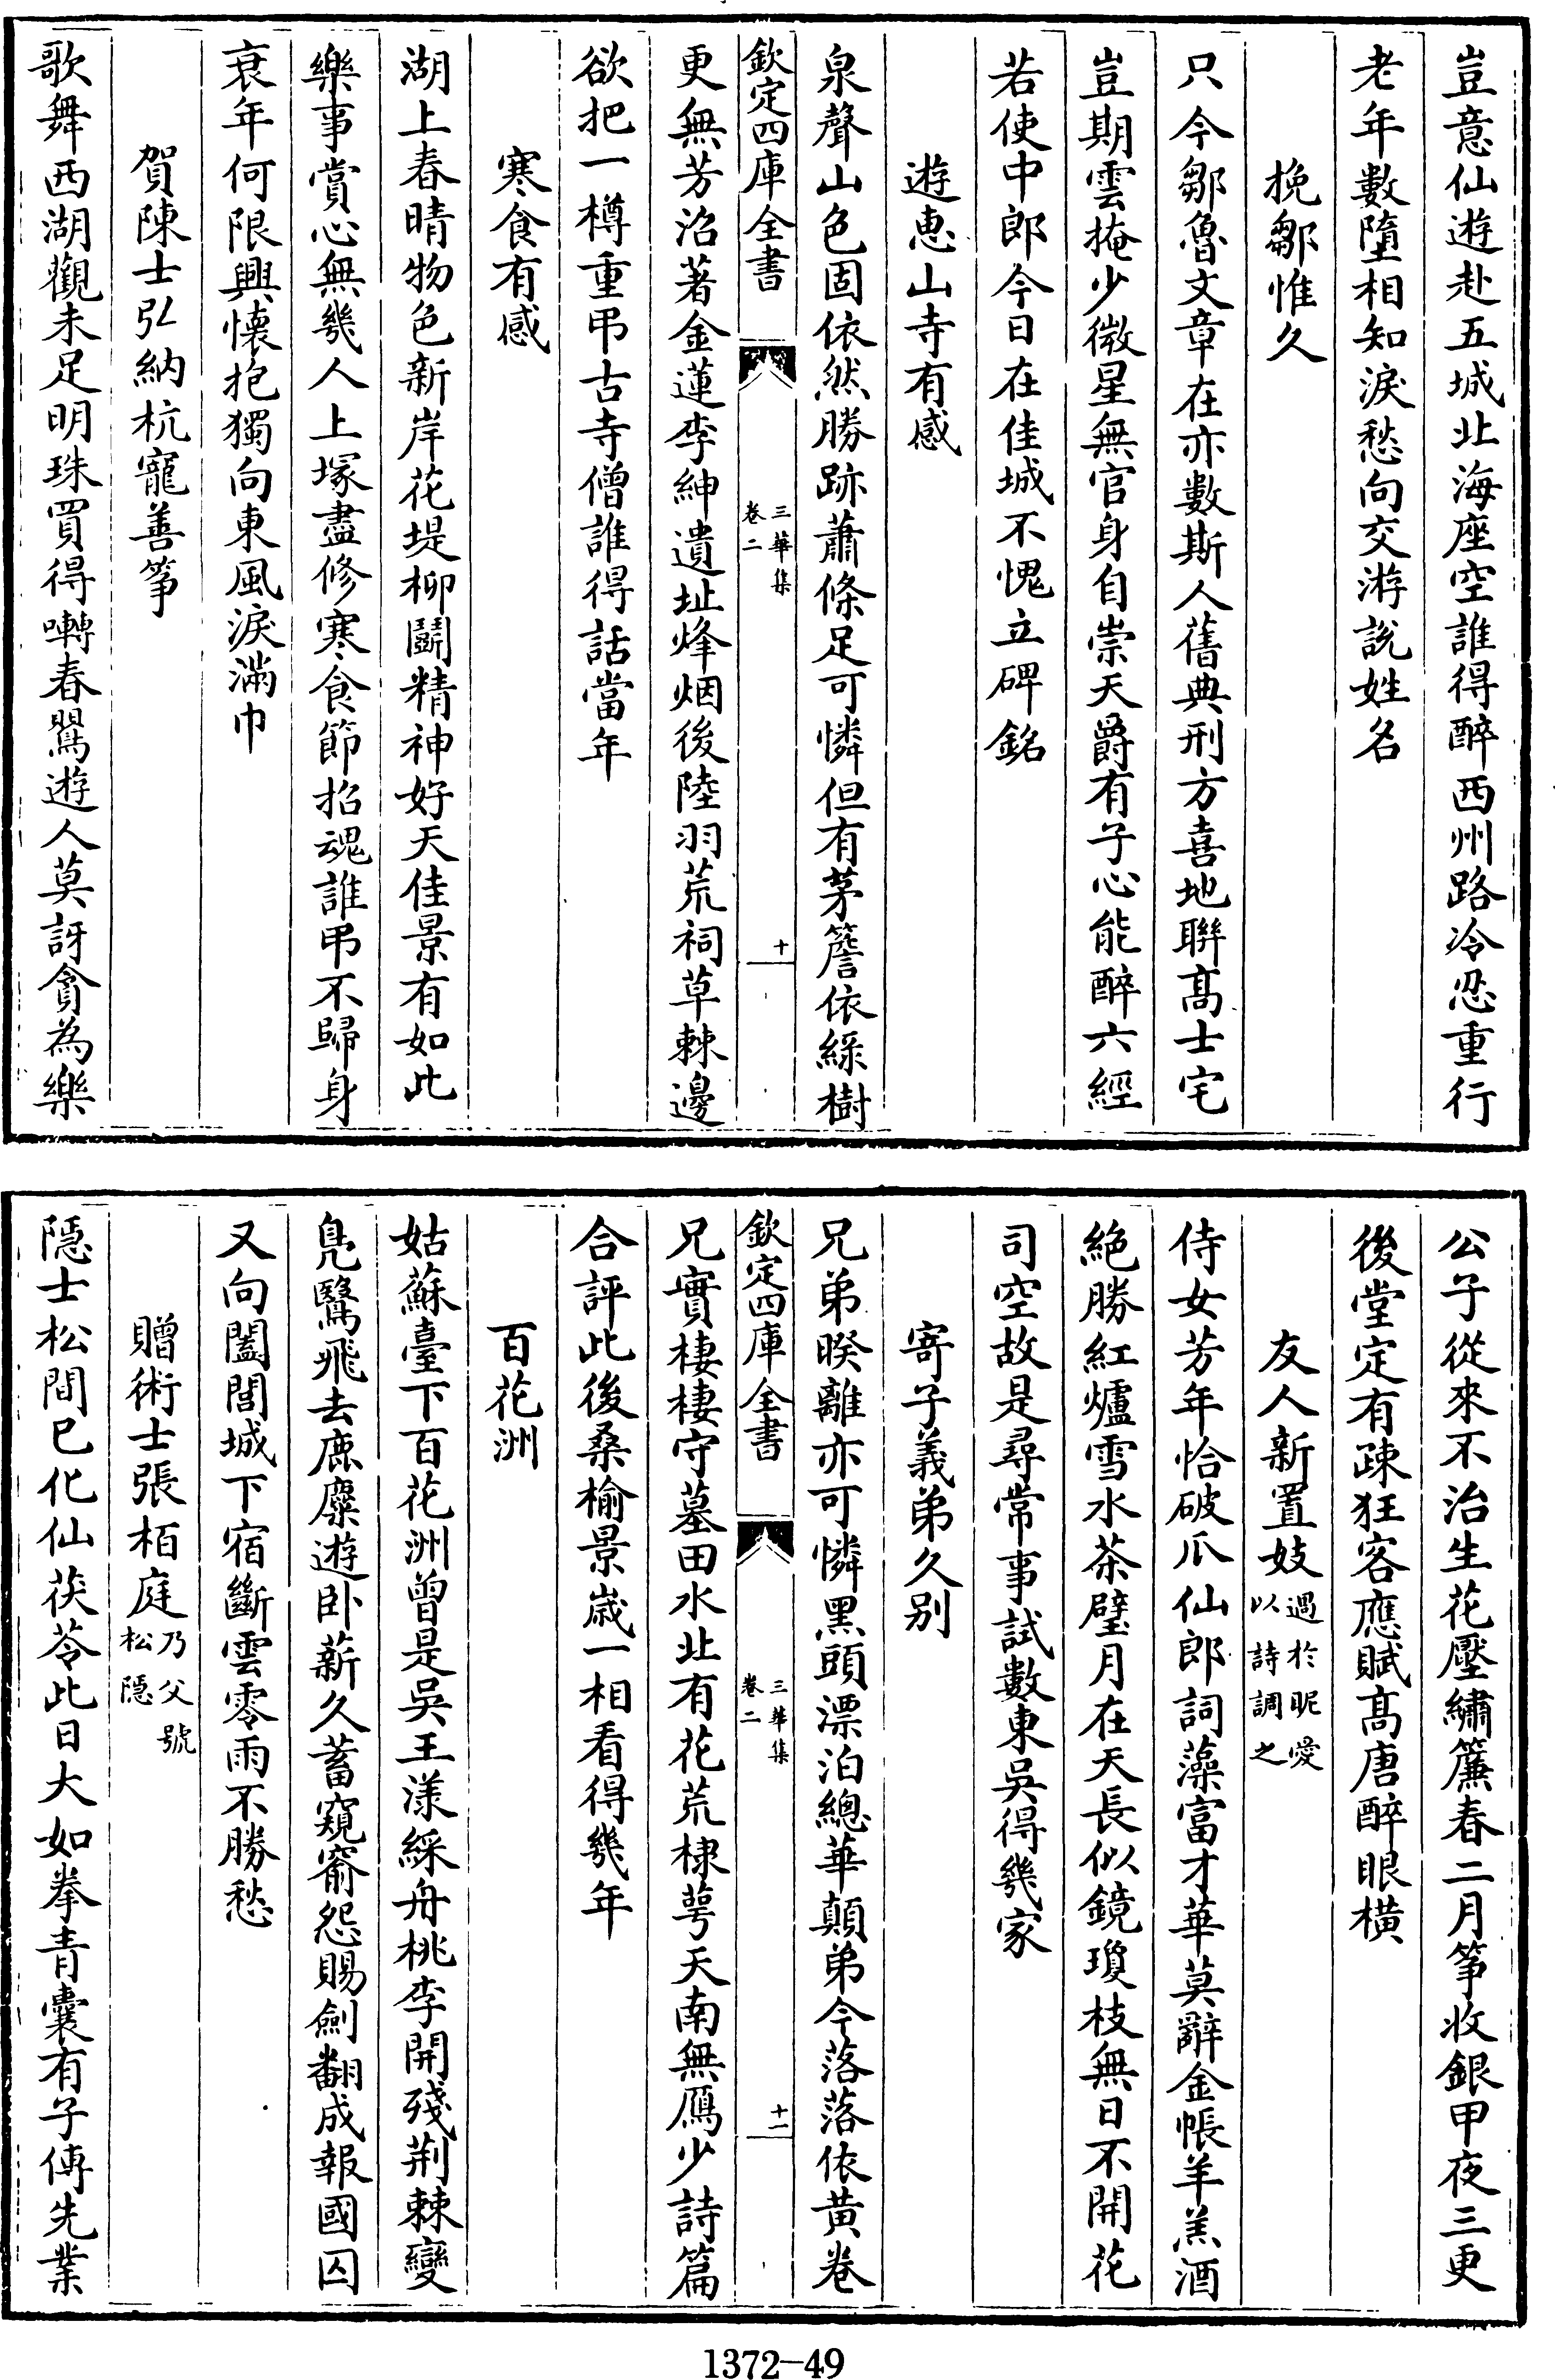 豈意仙遊赴五城北海座空誰得醉西州路冷忍重行
老年數墮相知淚愁向交游說姓名
挽鄒惟久
只今鄒魯文章在亦數斯人舊典刑方喜地聯髙士宅
豈期雲掩少微星無官身自崇天爵有子心能醉六經
若使中郎今日在佳城不愧立碑銘
遊惠山寺有感
泉聲山色固依然勝跡蕭條足可憐但有茅簷依綠樹
欽定四庫全書
三華集
卷二
十
更無芳沼著金蓮李紳遺址烽烟後陸羽荒祠草棘邊
欲把一樽重弔古寺僧誰得話當年
寒食有感
湖上春晴物色新岸花堤柳鬭精神好天佳景有如此
樂事賞心無幾人上塚盡修寒食節招魂誰弔不歸身
衰年何限興懷抱獨向東風淚滿巾
賀陳士弘納杭寵善筝
歌舞西湖觀未足明珠買得囀春鸎遊人莫訝貪為樂
公子從來不治生花壓繡簾春二月筝收銀甲夜三更
後堂定有疎狂客應賦髙唐醉眼橫
友人新置妓過於昵愛以詩調之
侍女芳年恰破爪仙郎詞藻富才華莫辭金帳羊羔酒
絶勝紅爐雪水茶璧月在天長似鏡瓊枝無日不開花
司空故是尋常事試數東吳得幾家
寄子義弟久别
兄弟暌離亦可憐黑頭漂泊總華顛弟今落落依黄卷
欽定四庫全書
三華集
卷二
十一
兄實棲棲守墓田水北有花荒棣萼天南無鴈少詩篇
合評此後桑榆景歲一相看得幾年
百花洲
姑蘇臺下百花洲曾是吳王漾綵舟桃李開殘荆棘變
鳧鷖飛去鹿麋遊卧薪久蓄窺窬怨賜劍翻成報國囚
又向闔閭城下宿斷雲零雨不勝愁
贈術士張栢庭乃父號松隠
隠士松間已化仙茯苓此日大如拳青囊有子傳先業
1372-49